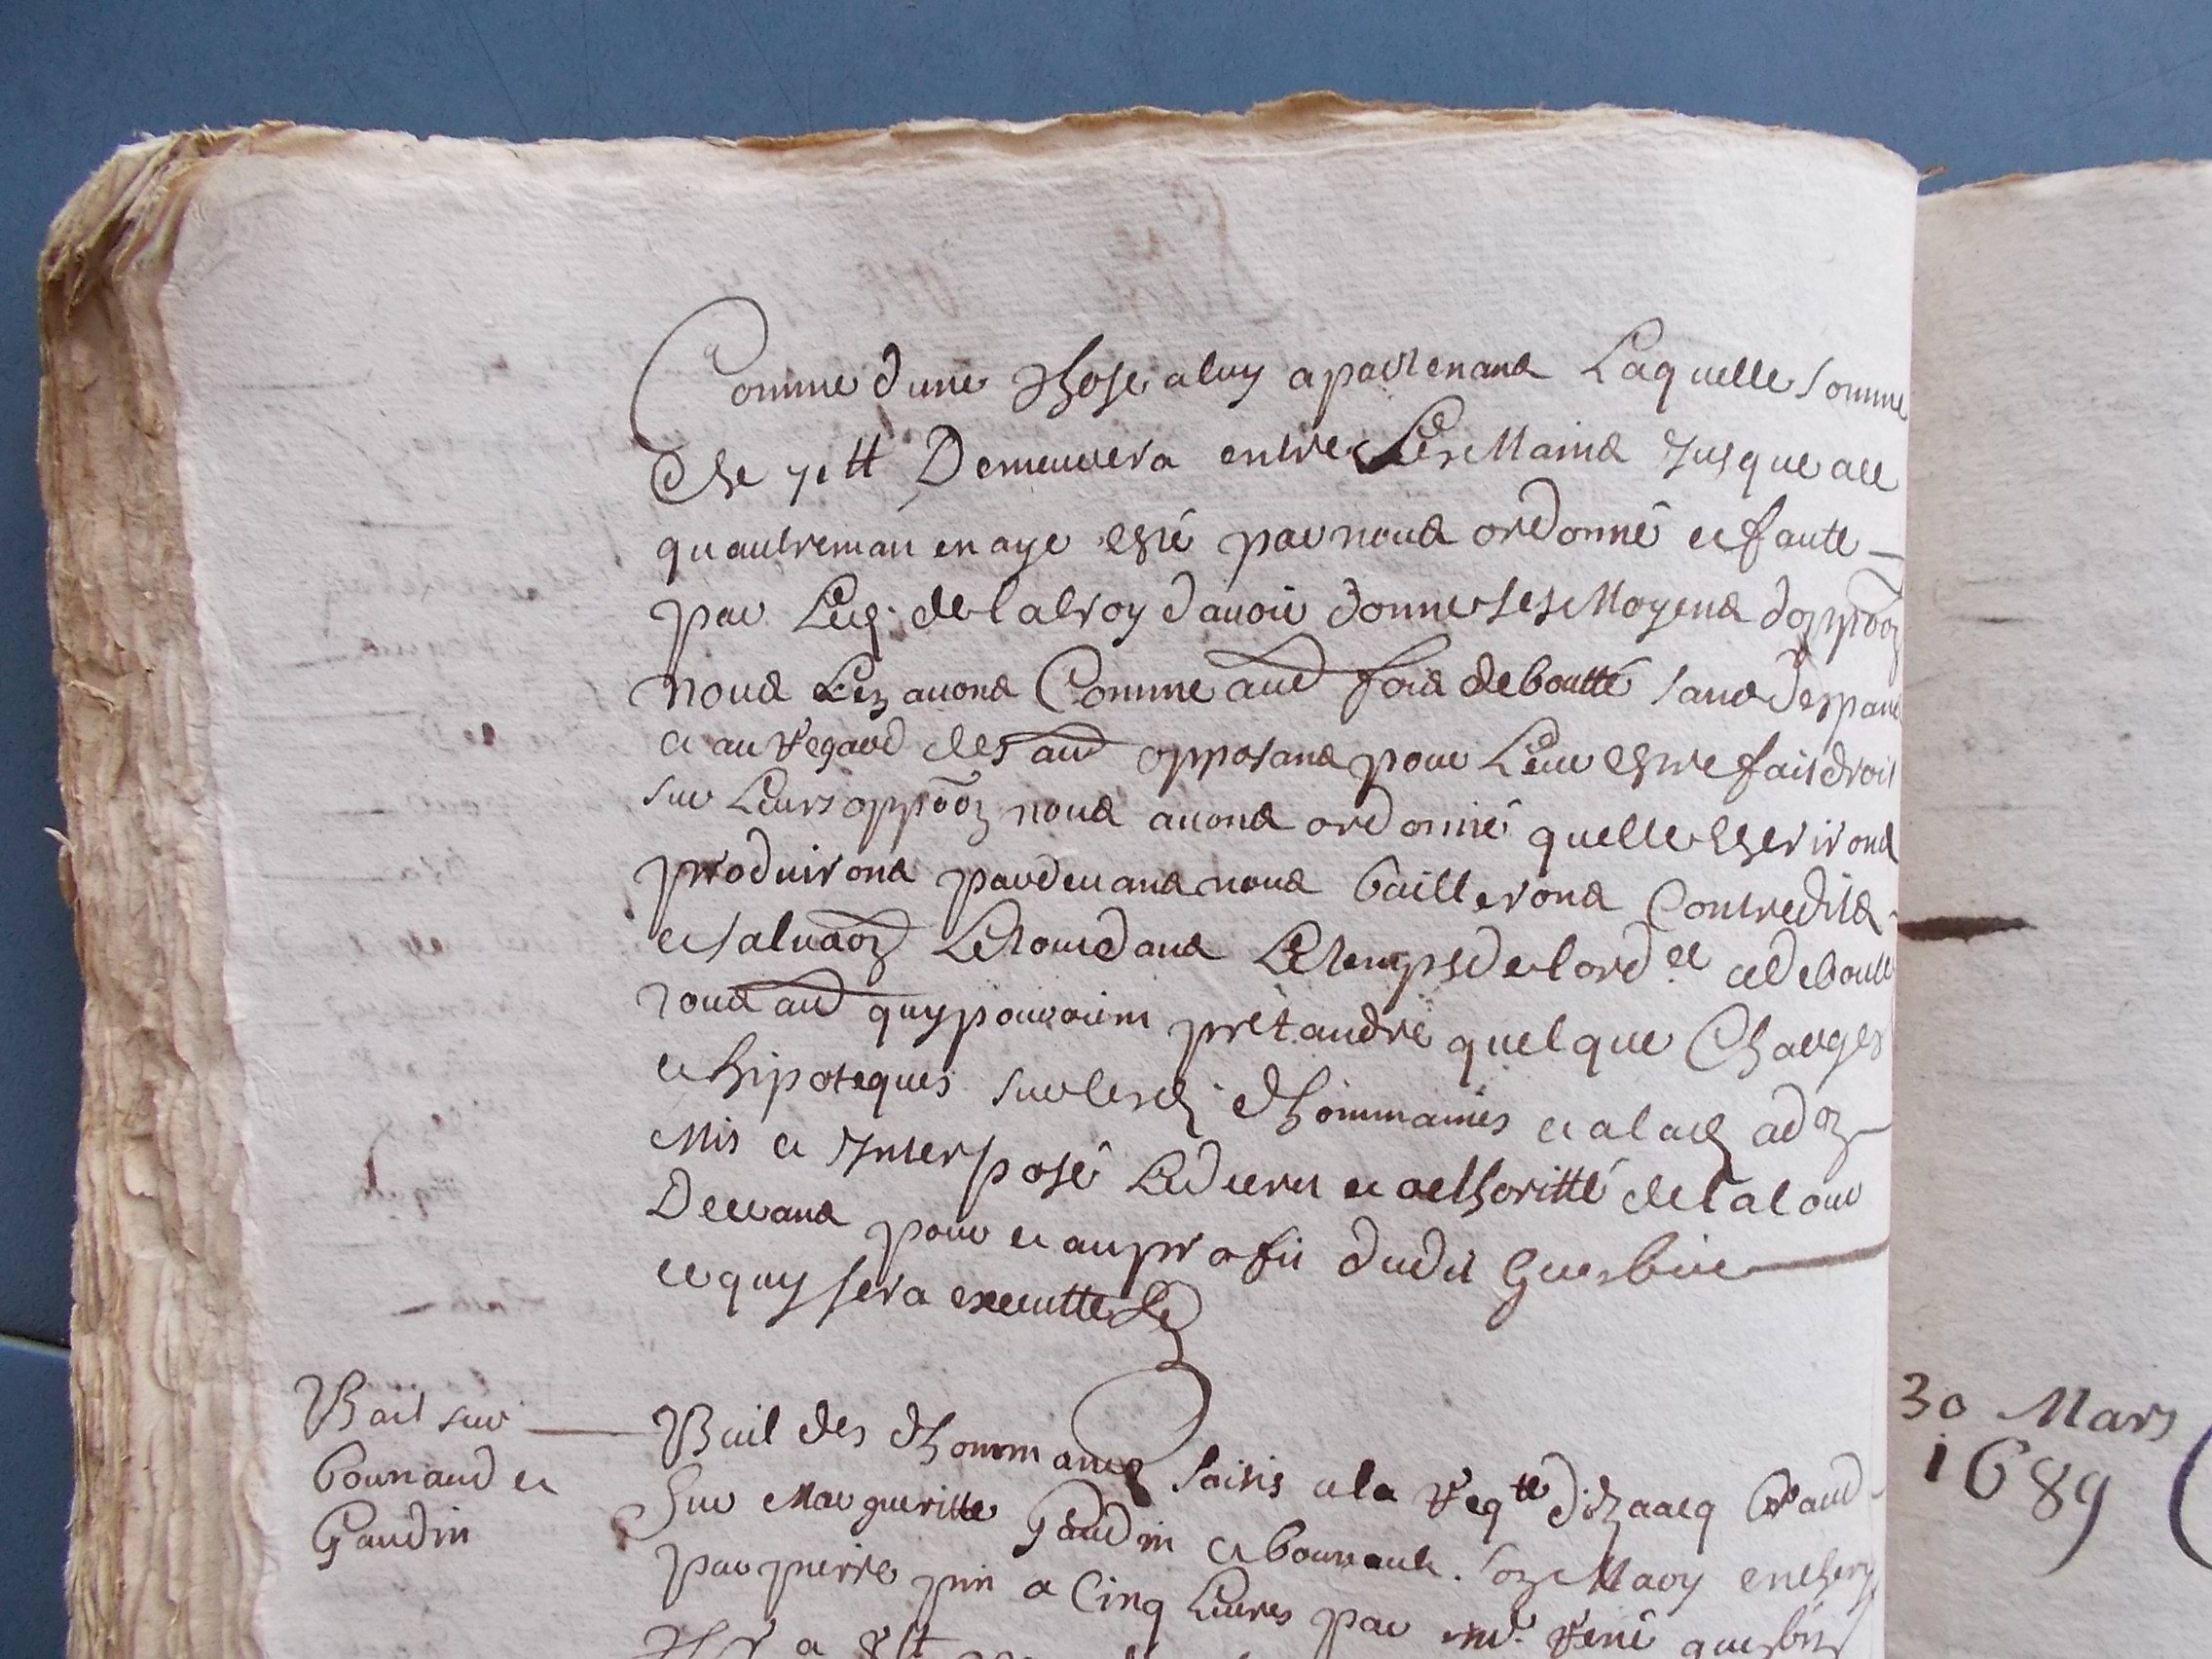 Comme dune Chose a luy apartenant Laquelle somme
de 71ᵗᵗ Demeurera entre Les Mains Jusque a ce
quautreman en aye esté par nous ordonné et faute
par de Lalroy davoir donné ses Moyens doppoõn
nous Les avons Comme autfois deboutté sans despans
et au regard des aud opposans pour Leur estre fait droit
sur Leurs oppoõn nous avons ordonné quelle Escriront
produiront pardevans nous bailleront Contredits
et salvaõn Le tout dans Le temps de lordce et deboutté
tous aud quy pouvoient prétandre quelque Charges
et hipoteques sur lesd dhommaines et a lad adõn
Mis et Interposé Le decret et acthoritté de la Cour
Devans pour et au profit dudit Guesbin
ce quy sera executté
Bail sur
bounaud et
Gaudin
Bail des dhommaines saisis a la reqte dizaacq
Sur Margueritte Gaudin et bounault son Mary enchery
par pierre pin a Cinq Livres par Mr René guesbin
30 Mars
1689